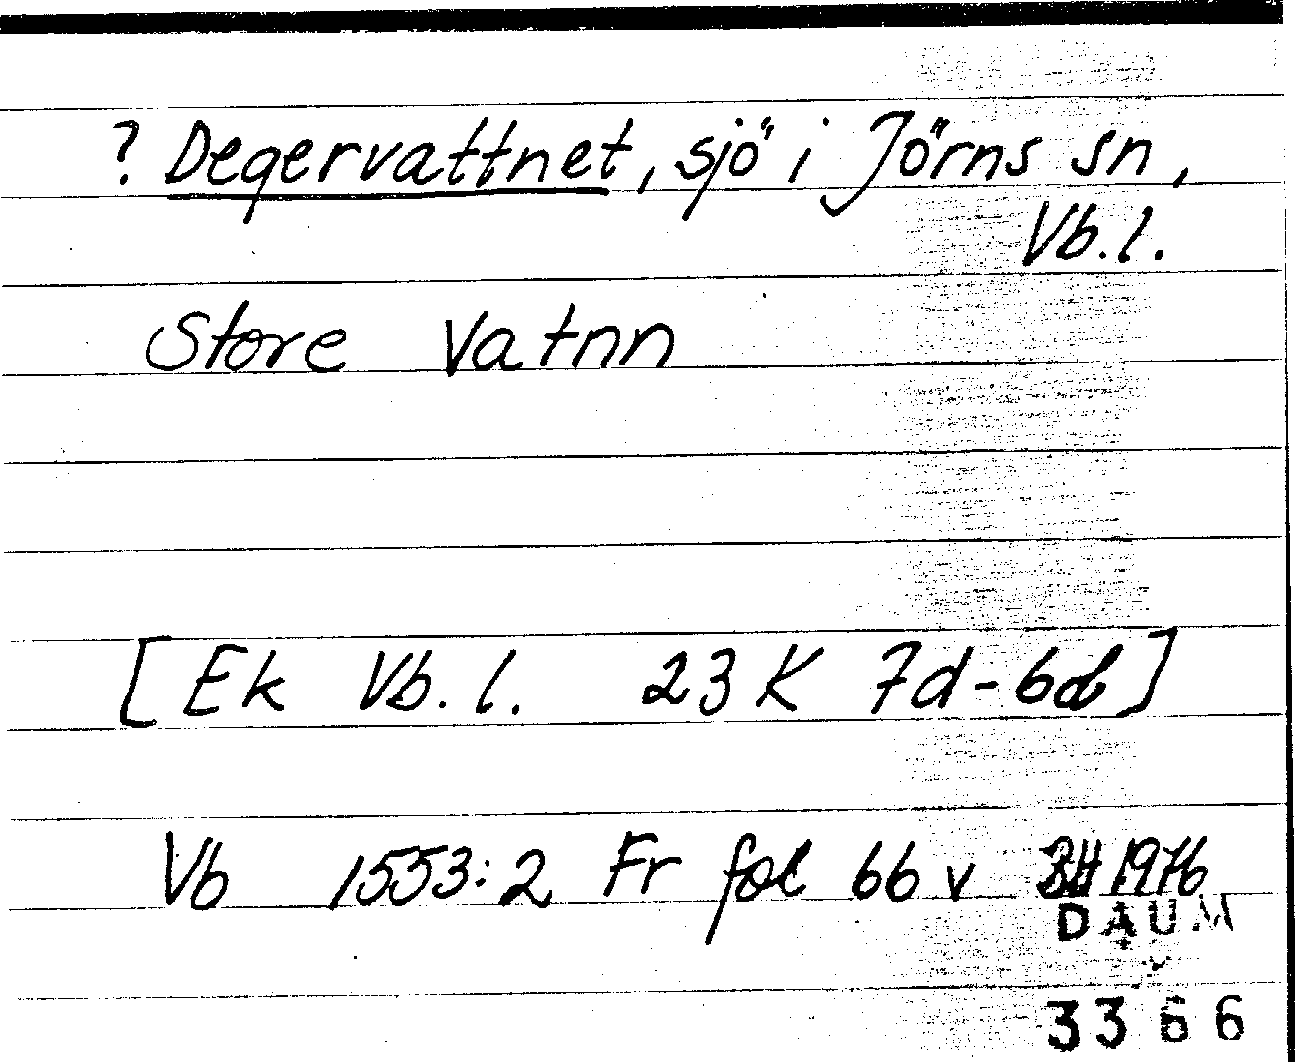 ? Degervattnet, sjö i Jörns sn,
Vb.l.
Store Vatnn
[Ek Vb.l. 23 K 7d-6d]
Vb 1553:2 Fr fol 66 v BH 1976
DAUM
3366